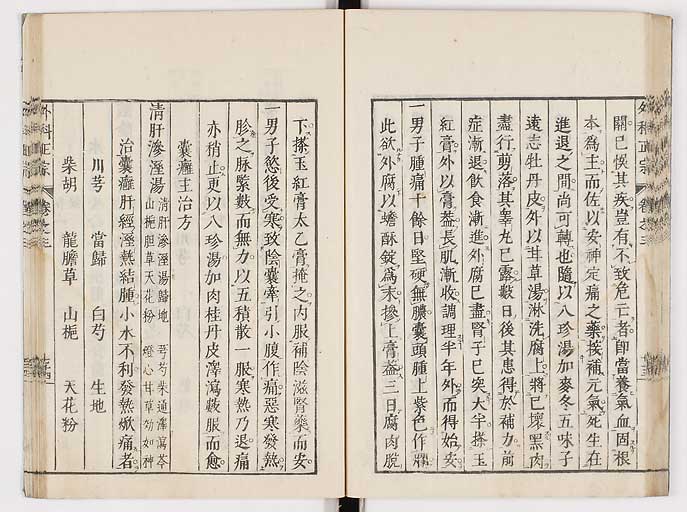 關已悞其疾豈有不致危亡者即當養氣血固根
本為主而佐以安神定痛之藥挨補元氣死生在
進退之間尚可轉也隨以八珍湯加麥冬五味子
遠志牡丹皮外以甘草湯淋洗腐上將已壞黑肉
盡行剪落其睾丸已露數日後其患得於補力前
症漸退飲食漸進外腐已盡腎子已突大半搽玉
紅膏外以膏蓋長肌漸收調理半年外而得始安
一男子腫痛十餘日堅硬無膿囊頭腫上紫色作爛
此欲外腐以蟾酥錠為末摻上膏蓋三日腐肉脫
外科正宗
卷之三
下搽玉紅膏太乙膏掩之内服補陰滋腎藥而安
一男子慾後受寒致陰囊牽引小腹作痛惡寒發熱
胗之脉緊數而無力以五積散一服寒熱乃退痛
亦稍止更以八珍湯加肉桂丹皮澤瀉數服而愈
囊癰主治方
清肝滲溼湯
清肝滲溼湯歸地
芎芍柴通澤瀉苓
山梔胆草天花粉
燈心甘草効如神
治囊癰肝經溼熱結腫小水不利發熱焮痛者
川芎 當歸 白芍 生地
柴胡 龍膽草 山梔 天花粉
外科正宗
卷之三